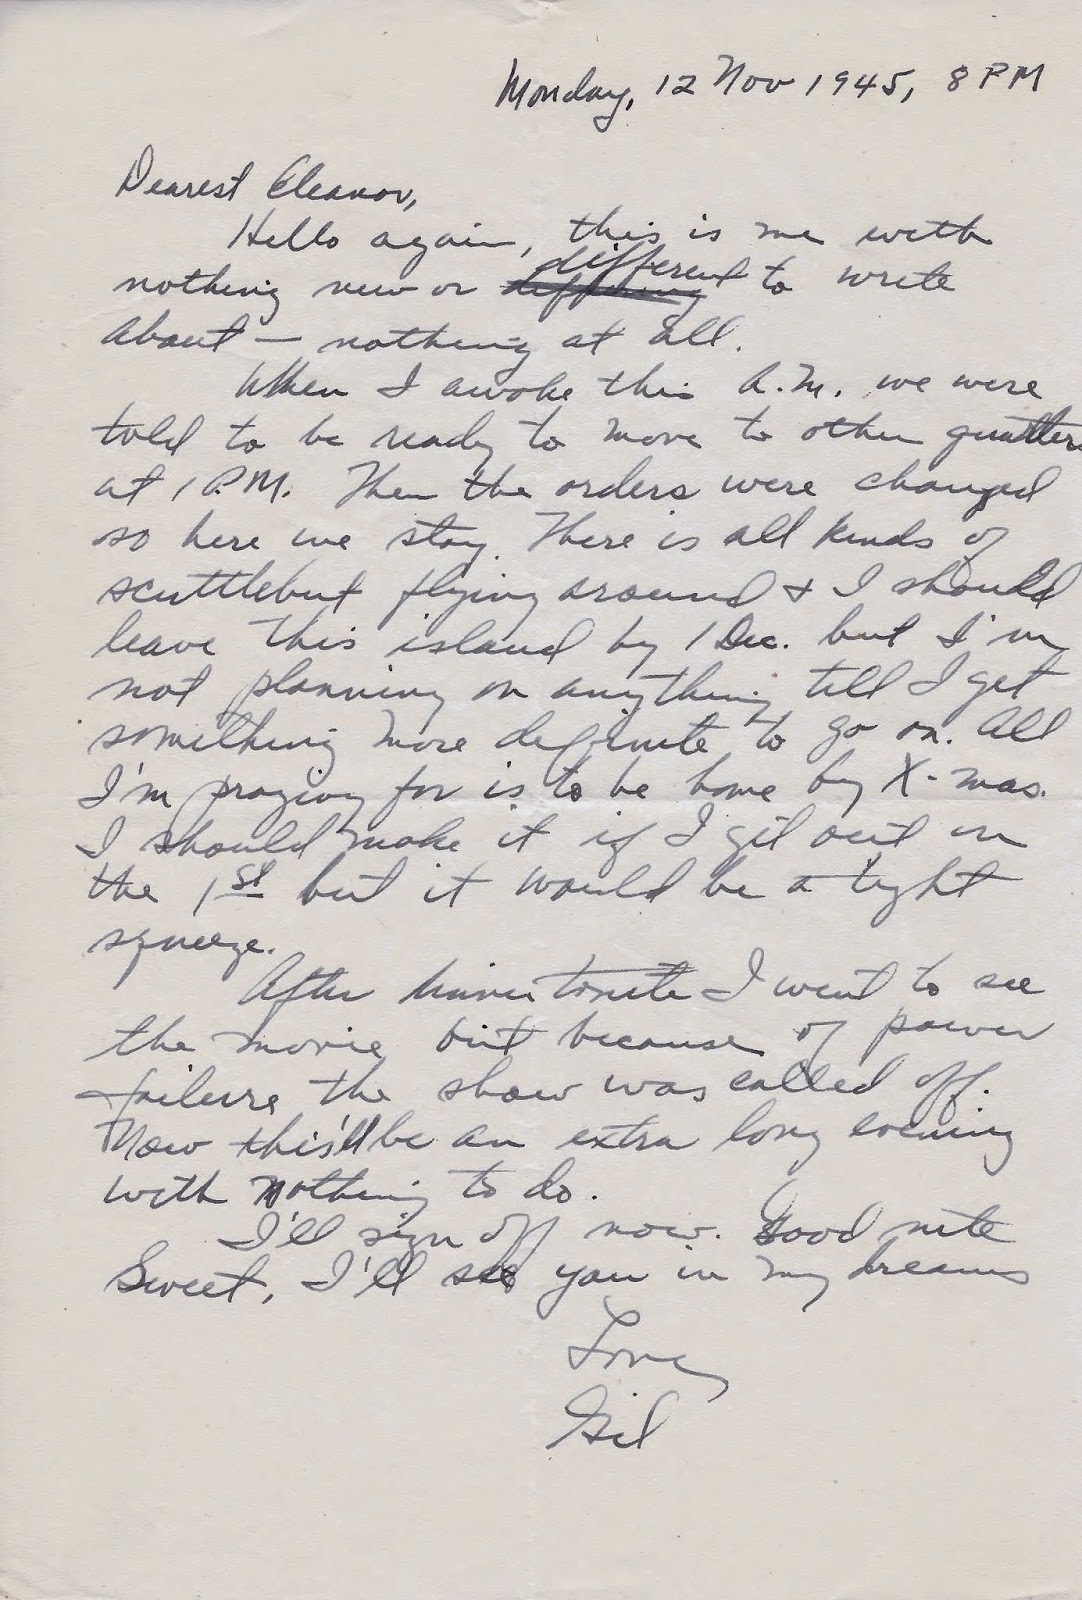 Monday, 12 Nov 1945, 8 PM
Dearest Eleanor,
Hello again, this is me with
different
nothing new or to write
about — nothing at all.
When I awoke this A.M. we were
told to be ready to move to other quarters
at 1 P.M. Then the orders were changed
so here we stay. There is all kinds of
scuttlebut flying around & I should
leave this island by 1 Dec. but I'm
not planning on anything till I get
something more definite to go on. All
I'm praying for is to be home by X-mas.
I should make it if I git out on
the 1st but it would be a tight
squeeze.
After tonite I went to see
the movie but because of power
failure the show was called off.
Now this'll be an extra long evening
with nothing to do.
I'll sign off now. Good nite
Sweet, I'll see you in my dreams
Love,
Gil